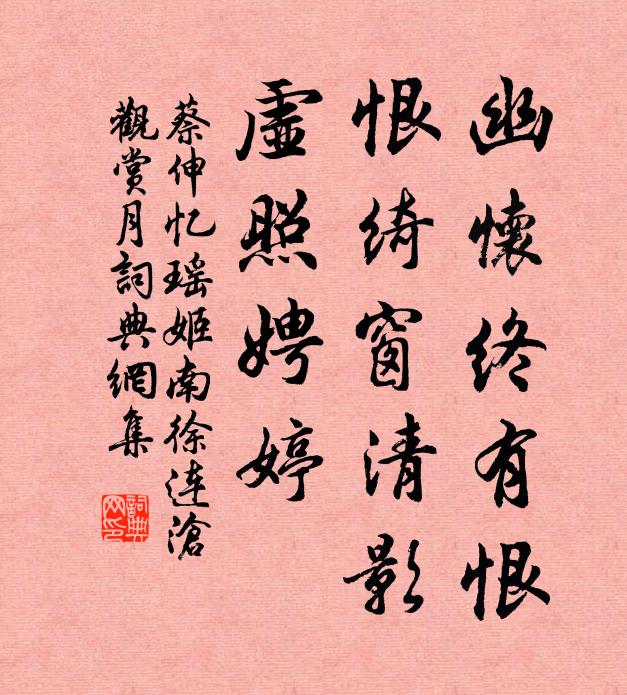 幽懷终有恨
恨绮窗清影
虛照娉婷
蔡伸忆瑶姬南徐连滄
觀赏月詞典網集
詞典
网印